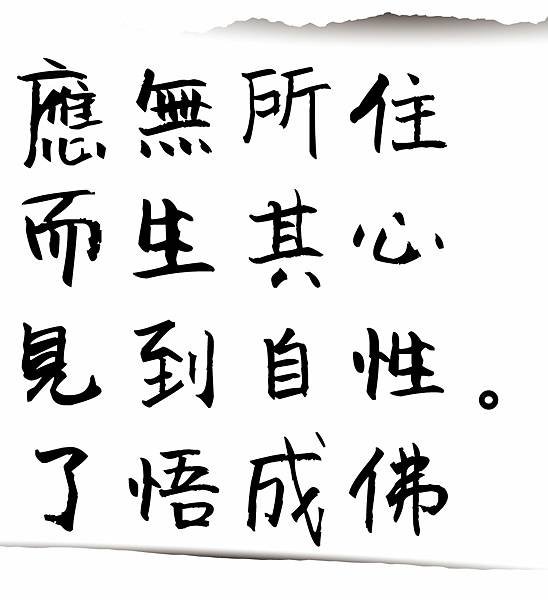 應無所住
而生其心
見到自性。
了悟成佛